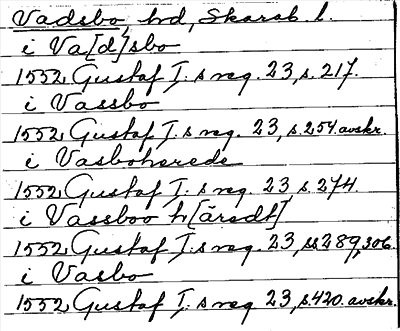 Vadsbo, hd, Skarab. l.
i Va[d]sbo
1552, Gustaf I:s reg. 23, s. 217.
i Vassbo
1552, Gustaf I:s reg. 23, s. 254 avskr.
i Vasboherede
1552, Gustaf I:s reg. 23 s. 274.
i Vassboo h[äredt]
1552, Gustaf I:s reg. 23, ss 289, 306.
i Vasbo
1552, Gustaf I:s reg. 23, s. 420. avskr.